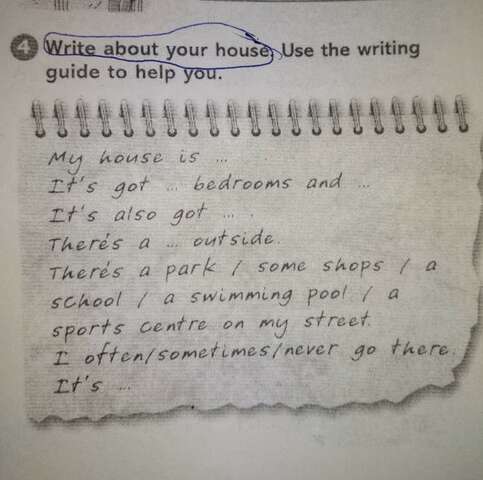 4 Write about your house. Use the writing
guide to help you.
My house is ...
It's got ... bedrooms and ...
It's also got ... .
There's a ... outside.
There's a park / some shops / a
school / a swimming pool / a
sports centre on my street.
I often/sometimes/never go there.
It's ...